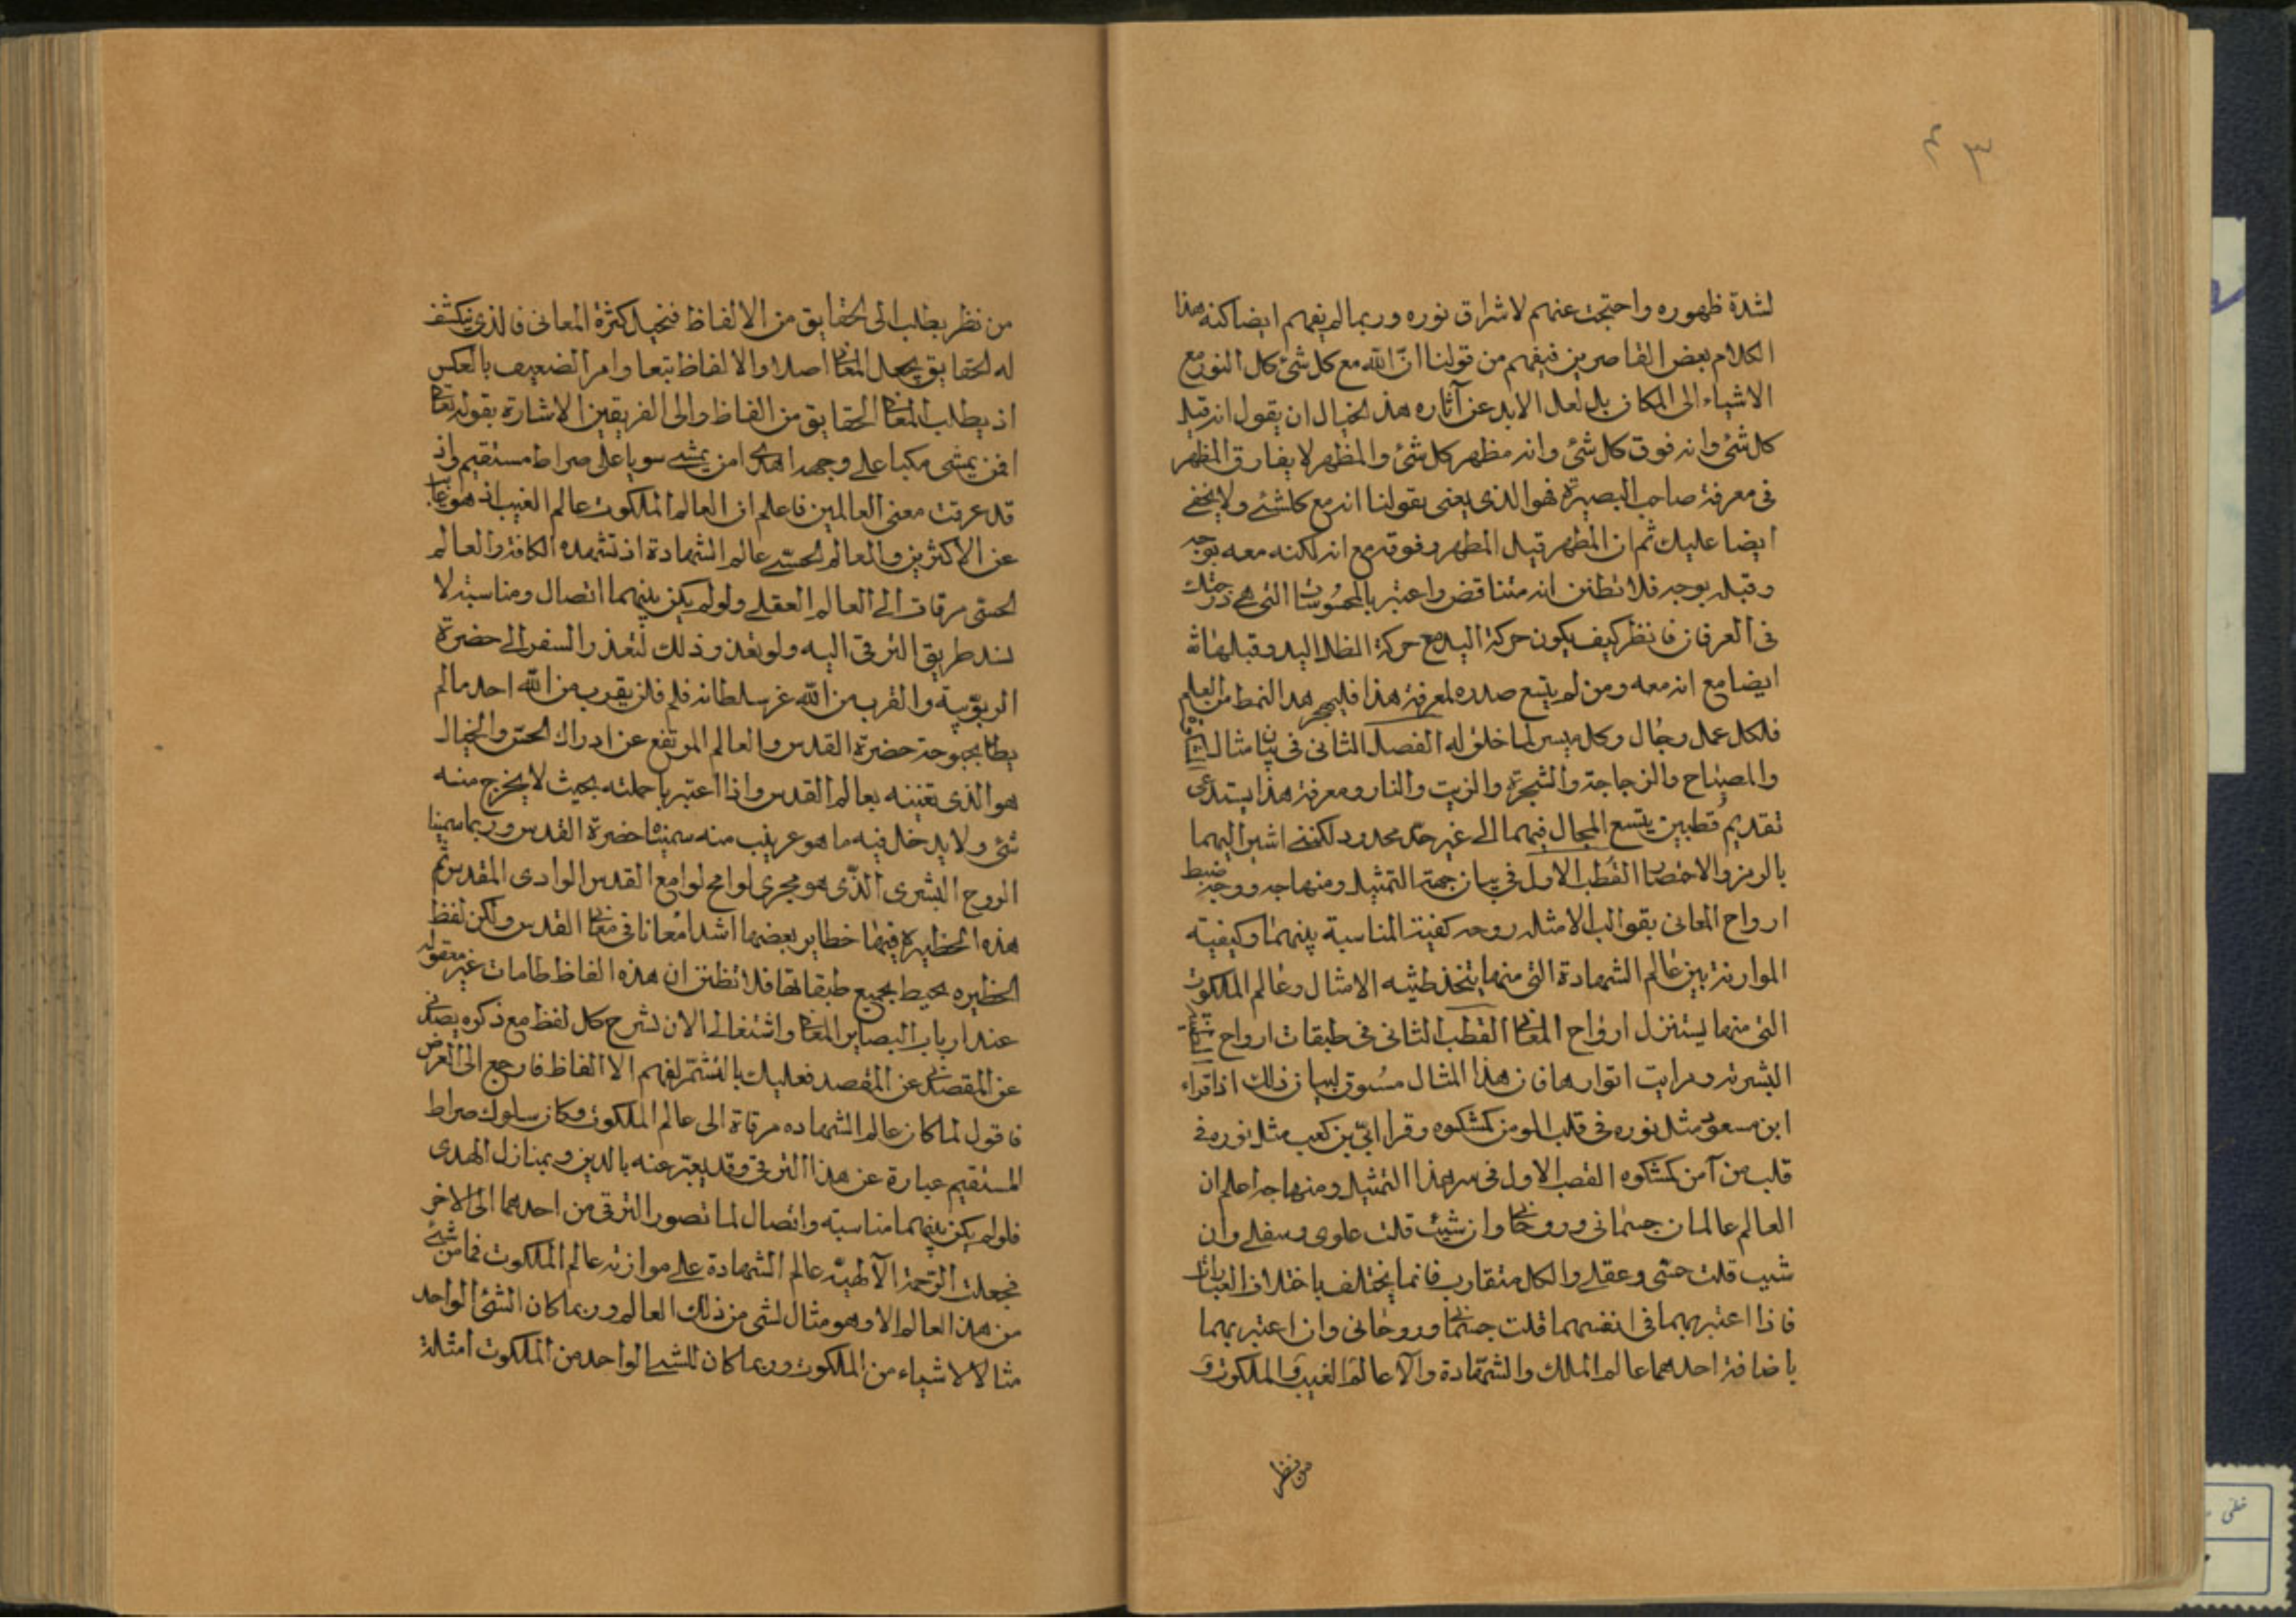 لشدة ظهوره واحتجت عنهم لاشراق نوره وربما لم يفهم ايضا كنه هذا
الكلام بعض القاصرين فيفهم من قولنا انّ الله مع كل شئ كل النور مع
الاشياء الى المكان بل لعل الابد عن آثاره هذ الخيال ان يقول انه قبل
كل شئ وانه فوق كل شئ وانه مظهر كل شئ والمظهر لا يفارق المظهر
فى معرفة صاحب البصيرة فهو الذى يعنى بقولنا انه مع كلشئ ولا يخفى
ايضا عليك ثم ان المظهر قبل المظهر وفوقه مع انه لكنه معه بوجه
وقبله بوجه فلا تظنن انه متناقض واعتبر بالمحسوسات التى هى درجتك
فى العرفان فانظر كيف يكون حركة اليد مع حركة الظل اليد وقبلها
ايضا مع انه معه ومن لم يتسع صدره لمعرفة هذا فليهجر هذا النمط من العلم
فلكل عمل رجال وكل ميسر لما خلق له الفصل الثانى فى بيان مثال المشكوة
والمصباح والزجاجة والشجرة والزيت والنار ومعرفة هذا يستدعى
تقديم قطبين يتسع المجال فيهما الى غير حدّ محدود لكننى اشير اليهما
بالرمز والاختصار القطب الاول فى بيان جهة التمثيل ومنهاجه ووجه ضبط
ارواح المعانى بقوالب الامثله روجه كفية المناسبة بينهما وكيفية
الموازنة بين عالم الشهادة التى منها يتخذ طينه الامثال وعالم الملكوت
التى منها يستنزل ارواح المعانى القطب الثانى فى طبقات ارواح
البشرته ومراتب انوارها فان هذا المثال مسوق لبيان ذلك اذ اقراء
ابن مسعود مثل نوره فى قلب المومن كمشكوه وقرا ابىّ بن كعب مثل نوره فى
قلب من آمن كمشكوه القصب الاول فى سر هذا التمثيل ومنهاجه اعلم ان
العالم عالمان جسمانى وروحانى وان شئت قلت علوى وسفلى وان
شيت قلت حسّى وعقلى والكل متقارب فانما يختلف باختلاف العبارات
فاذا اعتبرهما فى انفسهما قلت جسمانى وروحانى وان اعتبر بهما
باضافة احدهما عالم الملك والشهادة والآ عالم الغيب والملكوت و
من نظر
من نظر بطلب الى الحقايق من الالفاظ فتخيل كثرة المعانى فالذى ينكشف
له الحقايق يجعل المعانى اصلا والالفاظ تبعا وامر الضعيف بالعكس
اذ يطلب المعانى الحقايق من الفاظ والى الفريقين الاشارة بقوله تعالى
افمن يمشى مكبا على وجهه اهدى امن يمشى سويا على صراط مستقيم واذ
قد عرفت معنى العالمين فاعلم ان العالم الملكوت عالم الغيب اذ هو غائب
عن الاكثرين والعالم الحسّى عالم الشهادة اذ تشهده الكافة والعالم
الحسّى مرقات الى العالم العقلى ولو لم يكن بينهما اتصال ومناسبة لا
نسد طريق الترقى اليه ولو تعذر ذلك لتعذر السفر الى حضرة
الربوبية والقرب من الله عز سلطانه فلم فلن يقرب من الله احد ما لم
يطا بحبوحة حضرة القدس والعالم المرتفع عن ادراك الحسّ والخيال
هو الذى نعنينه بعالم القدس واذا اعتبر باجملته بحيث لا يخرج منه
شئ ولا يدخل فيه ما هو غريب منه سميناه حضرة القدس وربما سمينا
الروح البشرى الذّى هو مجرى لوامح لوامع القدس الوادى المقدس ثم
هذه الحظيرة فيها خطاير بعضها اشد امعانا فى معانى القدس ولكن لفظ
الحظيره يحيط بجميع طبقاتها فلا تظنن ان هذه الفاظ طامات غير معقوله
عند ارباب البصاير المعانى واشتغالى الان لشرح كل لفظ مع ذكره يصدنى
عن المقصد عن المقصد فعليك بالتشمّر لفهم الا الفاظ فارجع الى الغرض
فاقول لما كان عالم الشهاده مرقاة الى عالم الملكوت وكان سلوك صراط
المستقيم عبارة عن هذا الترقى وقد يعبّر عنه بالدين وبمنازل الهدى
فلو لم يكن بينهما مناسبته واتصال لما تصور الترقى من احدهما الى الاخر
فجعلت الرّحمة الآلهيّه عالم الشهادة على موازنه عالم الملكوت فما من شئ
من هذا العالم الا وهو مثال لشى من ذلك العالم وربما كان الشئ الواحد
مثالا لاشياء من الملكوت وربما كان للشى الواحد من الملكوت امثلة